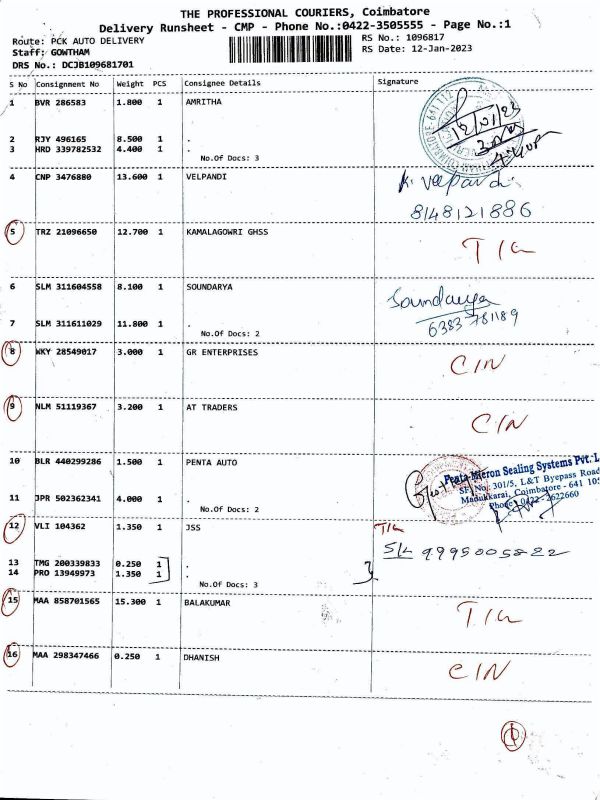 THE PROFESSIONAL COURIERS, Coimbatore
Delivery Runsheet - CMP - Phone No.:0422-3505555 - Page No.:1
Route: PCK AUTO DELIVERY
Staff: GOWTHAM
DRS No.: DCJB109681701
RS No.: 1096817
RS Date: 12-Jan-2023
S No Consignment No Weight PCS Consignee Details Signature
1 BVR 286583 1.800 1 AMRITHA
12/01/23
2 RJY 496165 8.500 1 .
3 HRD 339782532 4.400 1 .
No.Of Docs: 3
4 CNP 3476880 13.600 1 VELPANDI
K. Velpandi
8148121886
5 TRZ 21096650 12.700 1 KAMALAGOWRI GHSS
T/L
6 SLM 311604558 8.100 1 SOUNDARYA
Soundarya
6383 781189
7 SLM 311611029 11.800 1 .
No.Of Docs: 2
8 WKY 28549017 3.000 1 GR ENTERPRISES
C/N
9 NLM 51119367 3.200 1 AT TRADERS
C/N
10 BLR 440299286 1.500 1 PENTA AUTO
Penta Micron Sealing Systems Pvt. L
SF. No. 301/5, L&T Byepass Road
Madukkarai, Coimbatore - 641 105
Phone: 0422 - 2622660
11 JPR 502362341 4.000 1 .
No.Of Docs: 2
12 VLI 104362 1.350 1 JSS
T/L
S/L 9995005822
13 TMG 200339833 0.250 1 .
14 PRO 13949973 1.350 1 .
No.Of Docs: 3
15 MAA 858701565 15.300 1 BALAKUMAR
T/L
16 MAA 298347466 0.250 1 DHANISH
C/N